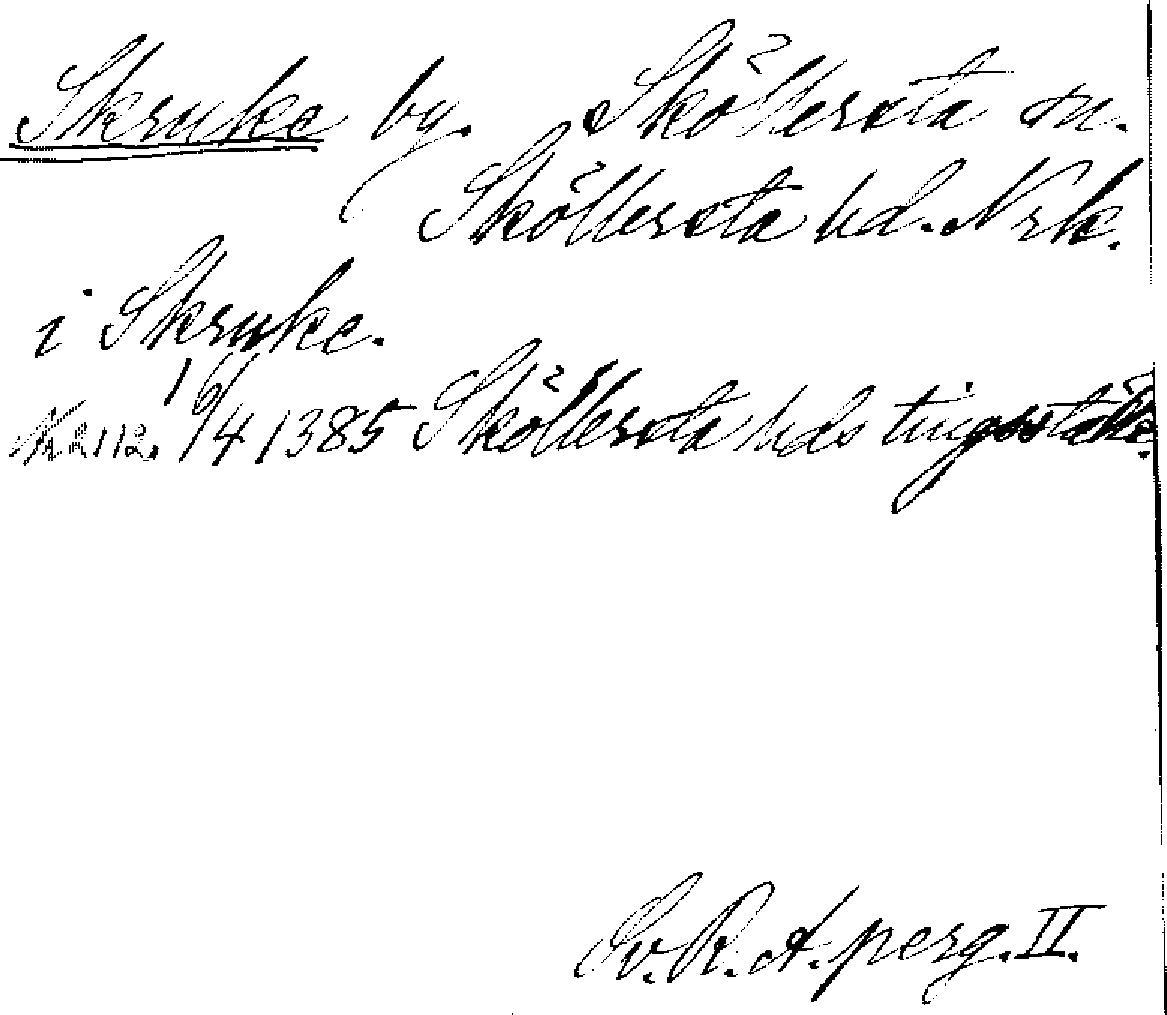 Skruke by. Sköllersta sn.
Sköllersta hd. Nrk.
i Skruke.
Nr 2112. 16/4 1385 Sköllersta hds tingsställe.
Sv. R. A. perg. II.